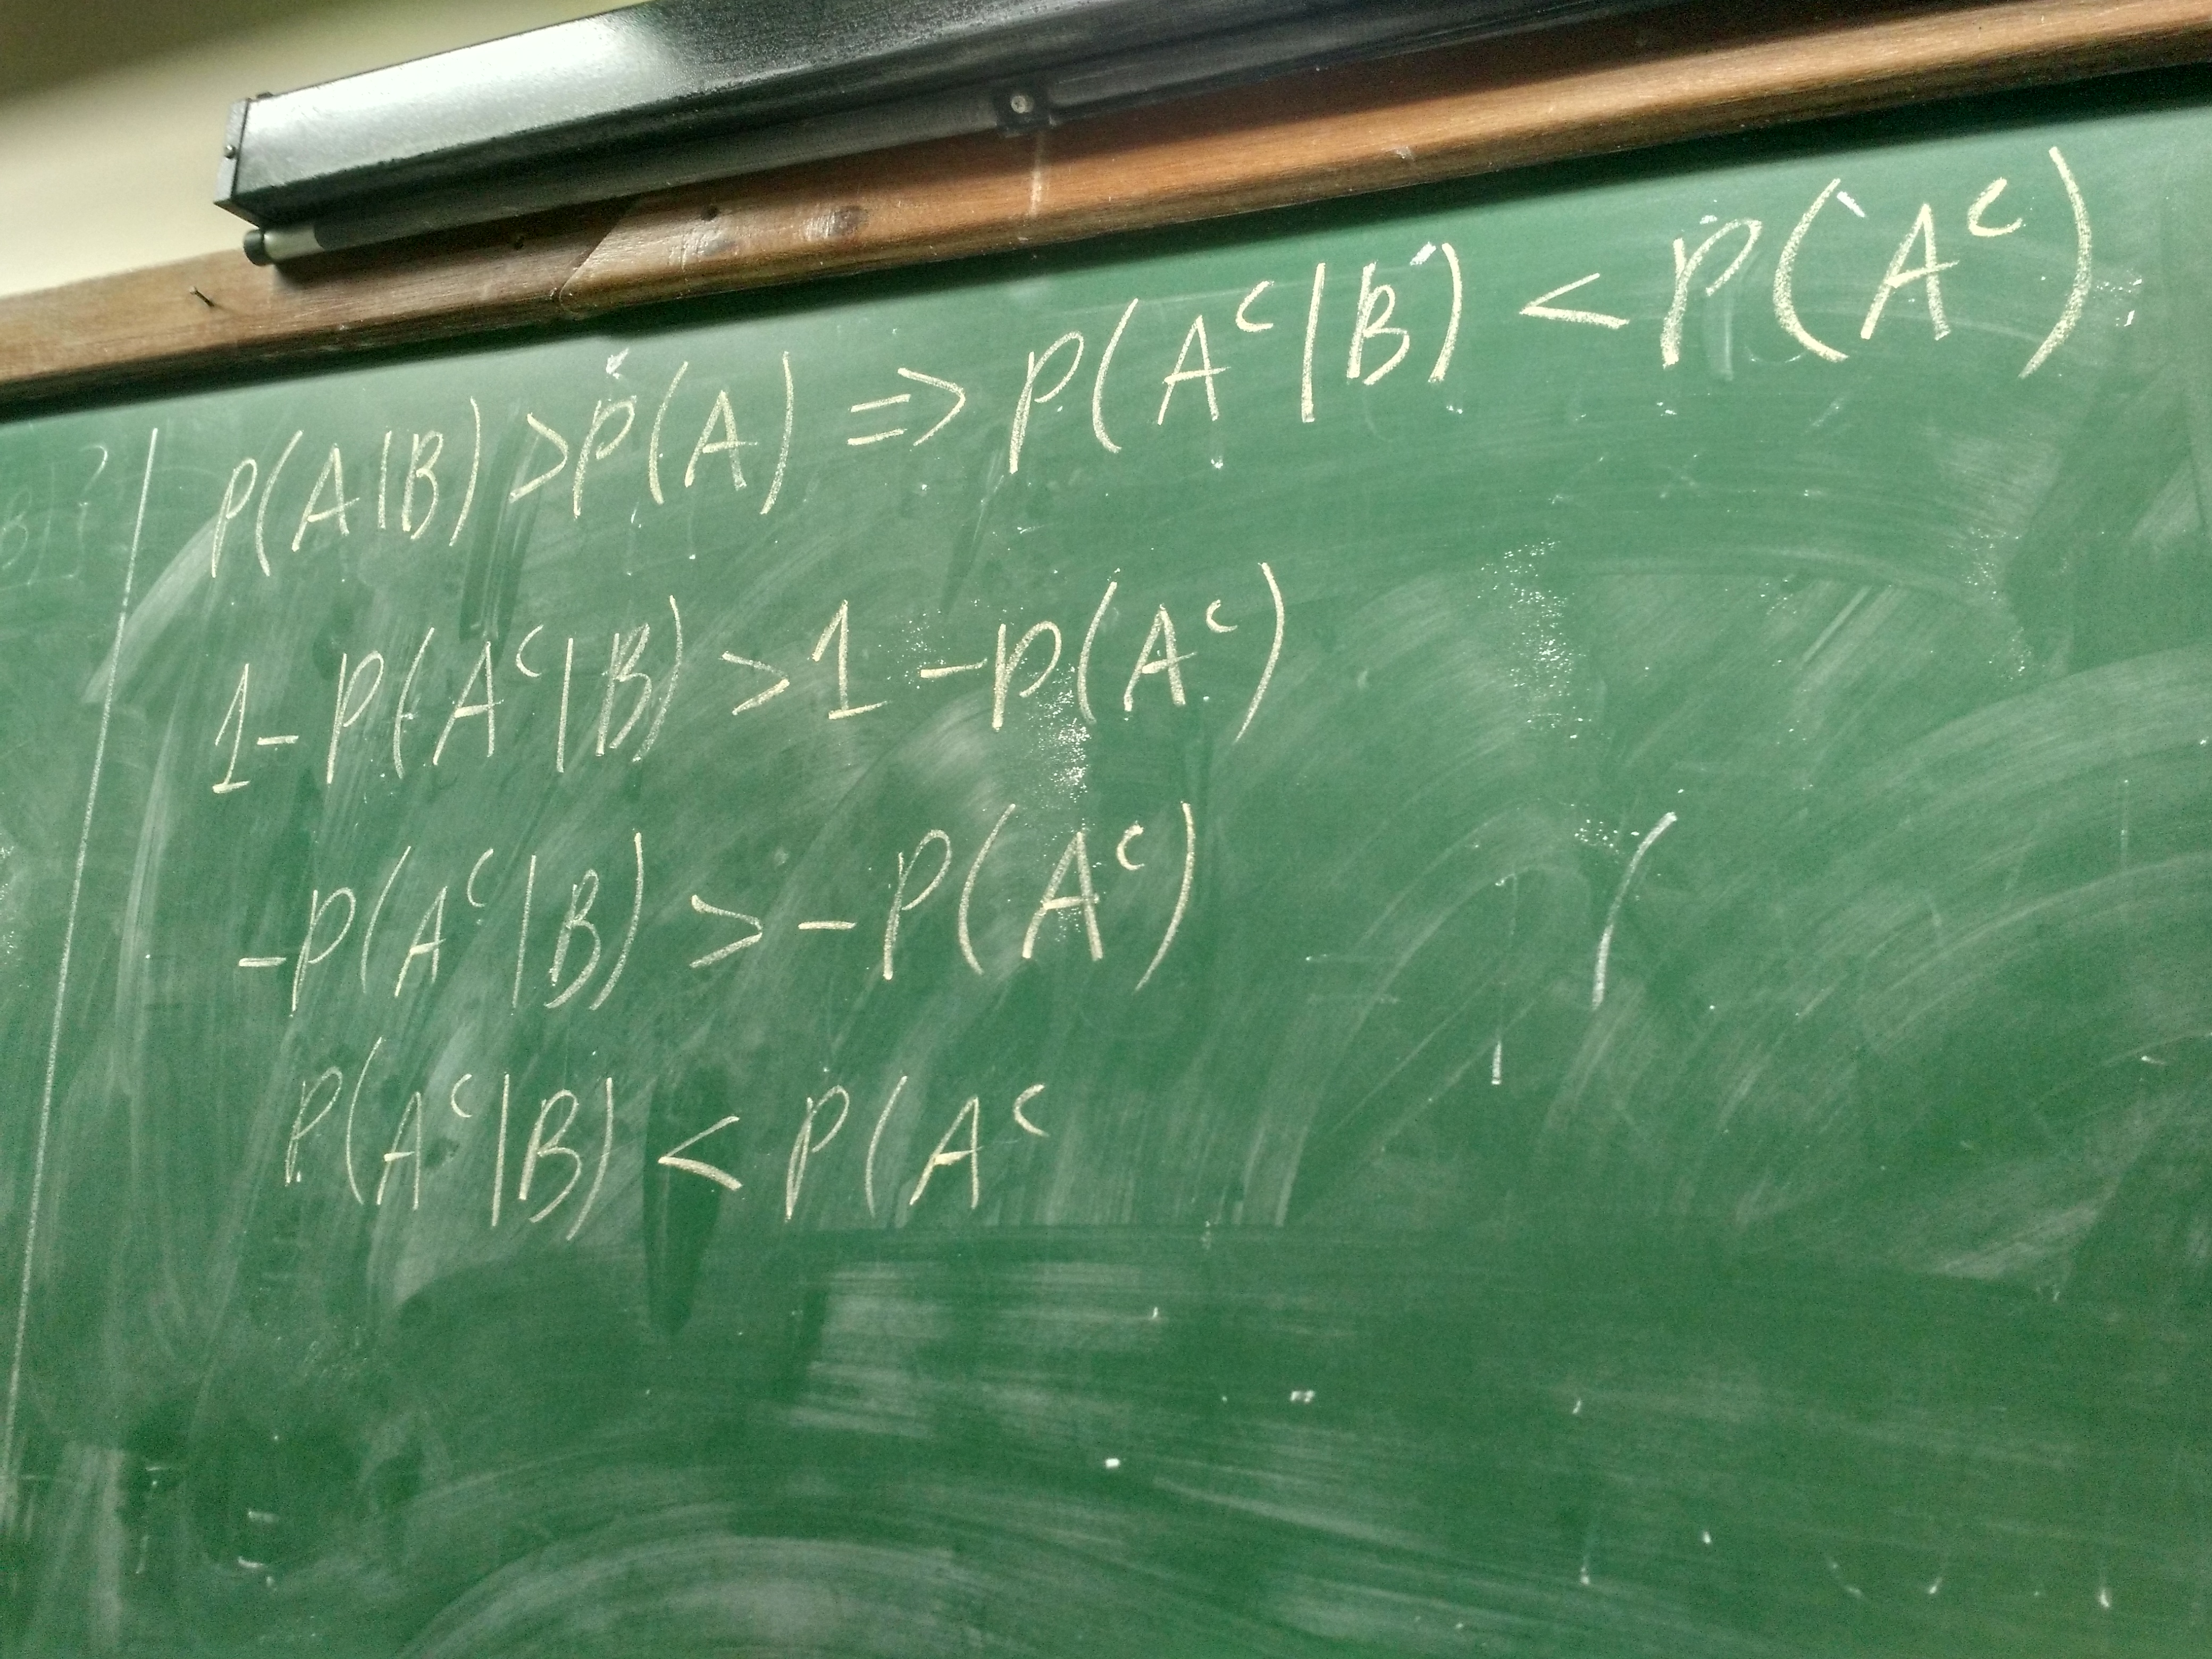 P(A|B) > P(A) => P(Aᶜ|B) < P(Aᶜ)
1-P(Aᶜ|B) > 1-P(Aᶜ)
-P(Aᶜ|B) > -P(Aᶜ)
P(Aᶜ|B) < P(Aᶜ